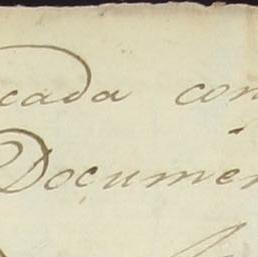 cada con
Documen